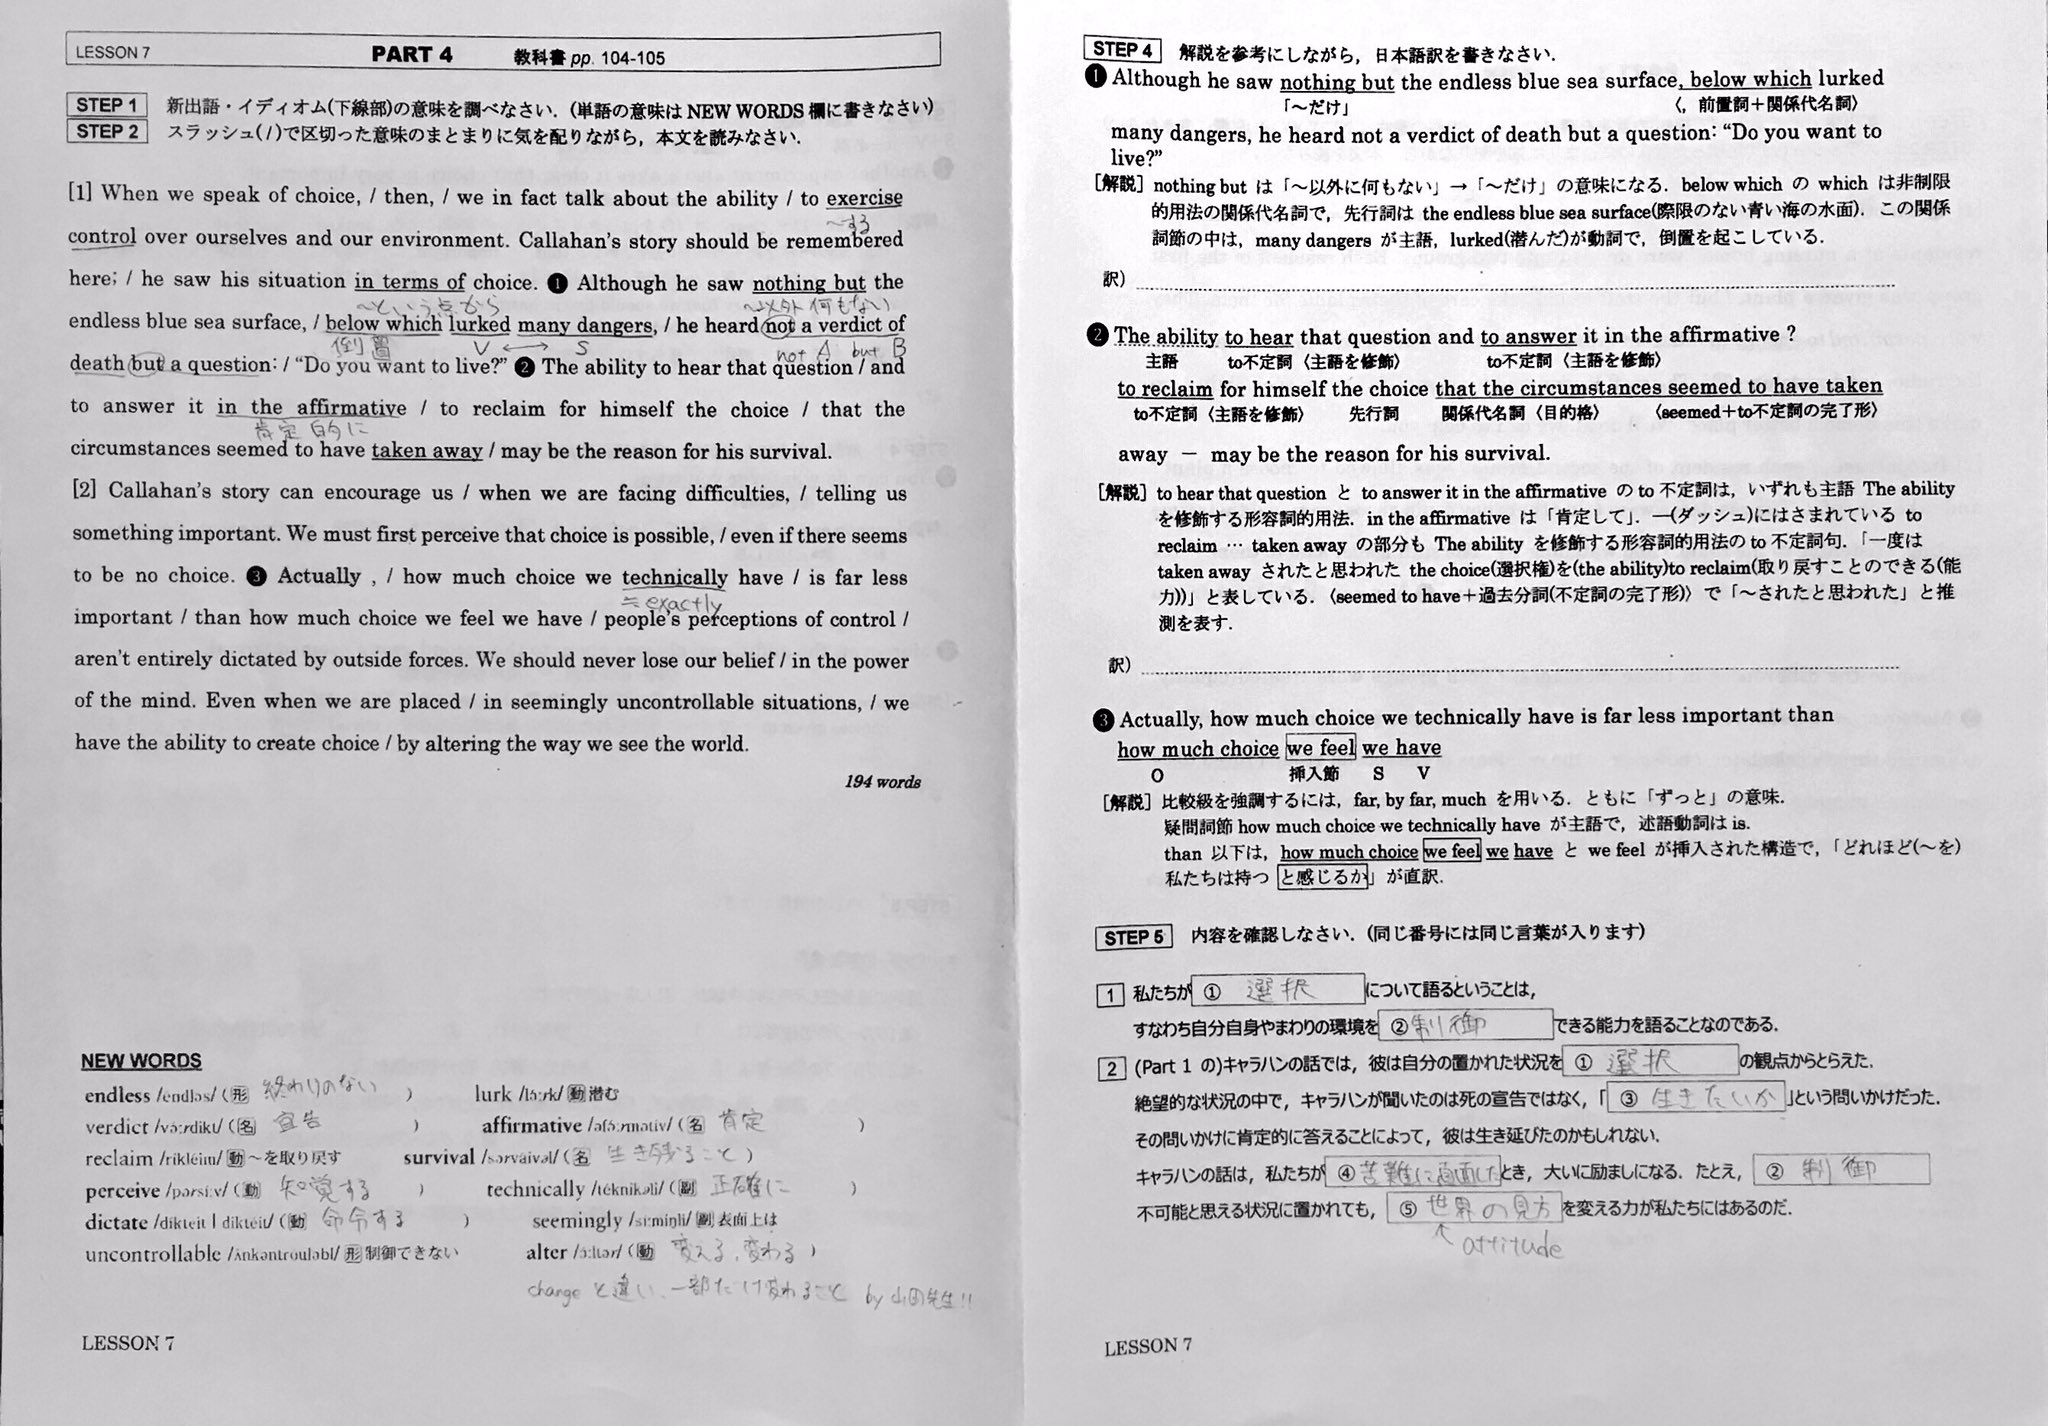 LESSON 7 PART 4 教科書 pp. 104-105
STEP 1 新出語・イディオム(下線部)の意味を調べなさい. (単語の意味は NEW WORDS 欄に書きなさい)
STEP 2 スラッシュ( / )で区切った意味のまとまりに気を配りながら, 本文を読みなさい.
[1] When we speak of choice, / then, / we in fact talk about the ability / to exercise
〜する
control over ourselves and our environment. Callahan's story should be remembered
here; / he saw his situation in terms of choice. ❶ Although he saw nothing but the
〜という点から 〜以外何もない
endless blue sea surface, / below which lurked many dangers, / he heard not a verdict of
倒置 V ⟷ S not A but B
death but a question: / “Do you want to live?” ❷ The ability to hear that question / and
to answer it in the affirmative / to reclaim for himself the choice / that the
肯定的に
circumstances seemed to have taken away / may be the reason for his survival.
[2] Callahan's story can encourage us / when we are facing difficulties, / telling us
something important. We must first perceive that choice is possible, / even if there seems
to be no choice. ❸ Actually , / how much choice we technically have / is far less
≒ exactly
important / than how much choice we feel we have / people's perceptions of control /
aren't entirely dictated by outside forces. We should never lose our belief / in the power
of the mind. Even when we are placed / in seemingly uncontrollable situations, / we
have the ability to create choice / by altering the way we see the world.
194 words
NEW WORDS
endless /éndləs/ (形 終わりのない ) lurk /lə́ːrk/ 動潜む
verdict /və́ːrdikt/ (名 宣告 ) affirmative /əfə́ːrmətiv/ (名 肯定 )
reclaim /rikléim/ 動〜を取り戻す survival /sərváivəl/ (名 生き残ること )
perceive /pərsíːv/ (動 知覚する ) technically /téknikəli/ (副 正確に )
dictate /díkteit | diktéit/ (動 命令する ) seemingly /síːmiŋli/ 副表面上は
uncontrollable /ʌ̀nkəntróuləbl/ 形制御できない alter /ɔ́ːltər/ (動 変える、変わる )
change と違い、一部だけ変わること by 山田先生!!
LESSON 7
STEP 4 解説を参考にしながら, 日本語訳を書きなさい.
❶ Although he saw nothing but the endless blue sea surface, below which lurked
「〜だけ」 〈, 前置詞＋関係代名詞〉
many dangers, he heard not a verdict of death but a question: “Do you want to
live?”
[解説] nothing but は「〜以外に何もない」→「〜だけ」の意味になる. below which の which は非制限
的用法の関係代名詞で, 先行詞は the endless blue sea surface(際限のない青い海の水面). この関係
詞節の中は, many dangers が主語, lurked(潜んだ)が動詞で, 倒置を起こしている.
訳)
❷ The ability to hear that question and to answer it in the affirmative ?
主語 to不定詞〈主語を修飾〉 to不定詞〈主語を修飾〉
to reclaim for himself the choice that the circumstances seemed to have taken
to不定詞〈主語を修飾〉 先行詞 関係代名詞〈目的格〉 〈seemed＋to不定詞の完了形〉
away － may be the reason for his survival.
[解説] to hear that question と to answer it in the affirmative の to 不定詞は, いずれも主語 The ability
を修飾する形容詞的用法. in the affirmative は「肯定して」. ―(ダッシュ)にはさまれている to
reclaim … taken away の部分も The ability を修飾する形容詞的用法の to 不定詞句.「一度は
taken away されたと思われた the choice(選択権)を(the ability)to reclaim(取り戻すことのできる(能
力))」と表している.〈seemed to have＋過去分詞(不定詞の完了形)〉で「〜されたと思われた」と推
測を表す.
訳)
❸ Actually, how much choice we technically have is far less important than
how much choice we feel we have
O 挿入節 S V
[解説] 比較級を強調するには, far, by far, much を用いる. ともに「ずっと」の意味.
疑問詞節 how much choice we technically have が主語で, 述語動詞は is.
than 以下は, how much choice we feel we have と we feel が挿入された構造で,「どれほど(〜を)
私たちは持つ と感じるか」が直訳.
STEP 5 内容を確認しなさい. (同じ番号には同じ言葉が入ります)
1 私たちが ① 選択 について語るということは,
すなわち自分自身やまわりの環境を ② 制御 できる能力を語ることなのである.
2 (Part 1 の)キャラハンの話では, 彼は自分の置かれた状況を ① 選択 の観点からとらえた.
絶望的な状況の中で, キャラハンが聞いたのは死の宣告ではなく,「 ③ 生きたいか 」という問いかけだった.
その問いかけに肯定的に答えることによって, 彼は生き延びたのかもしれない.
キャラハンの話は, 私たちが ④ 苦難に直面した とき, 大いに励ましになる. たとえ, ② 制御
不可能と思える状況に置かれても, ⑤ 世界の見方 を変える力が私たちにはあるのだ.
↑ attitude
LESSON 7